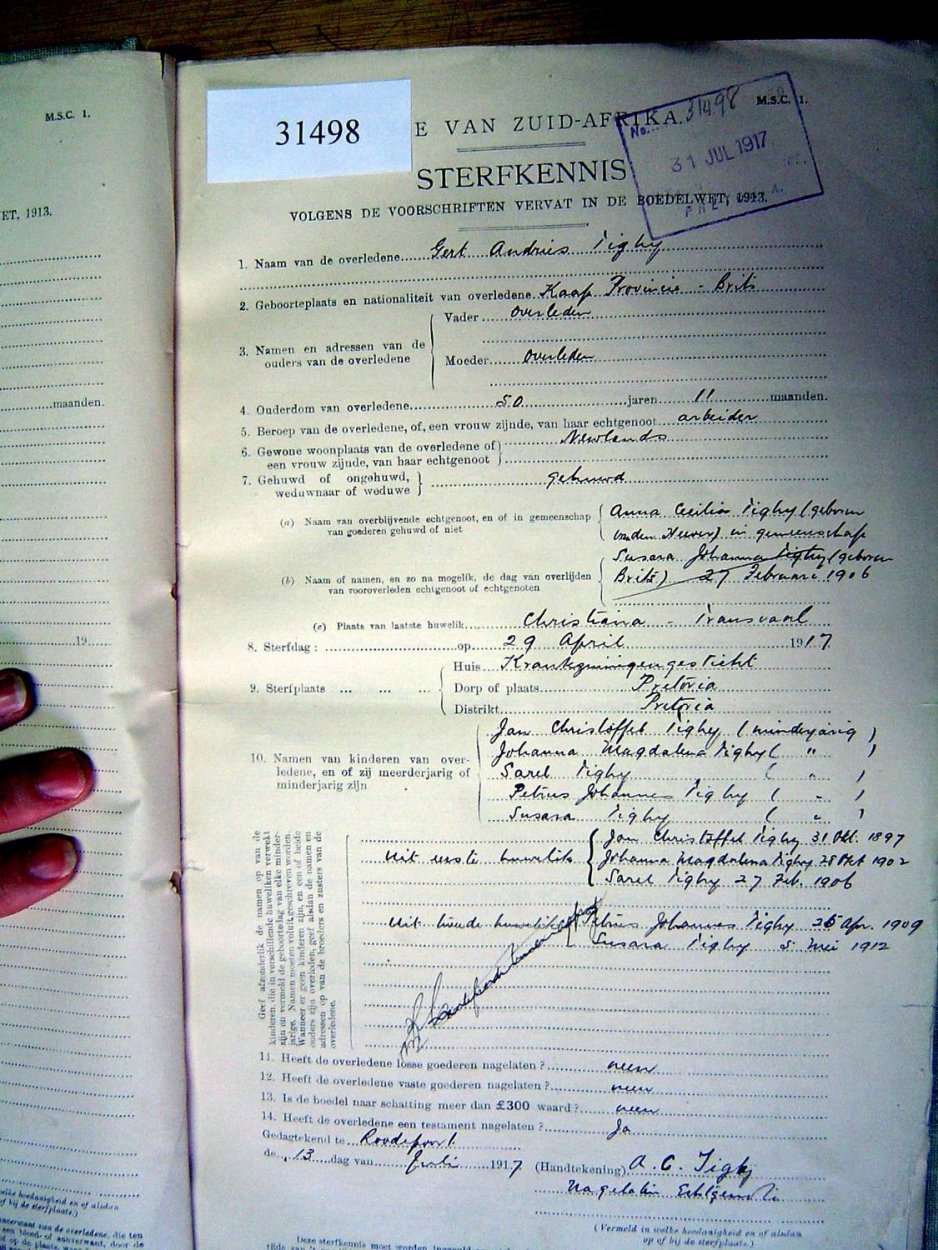 M.S.C. 1.
ET, 1913.
maanden.
19
31498
E VAN ZUID-AFRIKA.
M.S.C. 1.
No. 31498
31 JUL 1917
STERFKENNIS
VOLGENS DE VOORSCHRIFTEN VERVAT IN DE BOEDELWET, 1913.
1. Naam van de overledene Gert Andries Tighy
2. Geboorteplaats en nationaliteit van overledene Kaap Provincie - Brits
3. Namen en adressen van de ouders van de overledene
Vader overleden
Moeder overleden
4. Ouderdom van overledene 50 jaren 11 maanden.
5. Beroep van de overledene, of, een vrouw zijnde, van haar echtgenoot arbeider
6. Gewone woonplaats van de overledene of Newlands
een vrouw zijnde, van haar echtgenoot
7. Gehuwd of ongehuwd, gehuwd
weduwnaar of weduwe
(a) Naam van overblijvende echtgenoot, en of in gemeenschap
van goederen gehuwd of niet
Anna Cecilia Tighy (geboren
van den Heever) in gemeenschap
(b) Naam of namen, en zo na mogelik, de dag van overlijden
van vooroverleden echtgenoot of echtgenoten
Susara Johanna Tighy (geboren
Brits) 27 Februari 1906
(c) Plaats van laatste huwelik Christiana - Transvaal
8. Sterfdag : op 29 April 1917
9. Sterfplaats
Huis Krankzinnigengesticht
Dorp of plaats Pretoria
Distrikt Pretoria
10. Namen van kinderen van over-
ledene, en of zij meerderjarig of
minderjarig zijn
Jan Christoffel Tighy (minderjarig)
Johanna Magdalena Tighy ( " )
Sarel Tighy ( " )
Petrus Johannes Tighy ( " )
Susara Tighy ( " )
Geef afzonderlik de namen op van de
kinderen die in verschillende huweliken verwekt
zijn en vermeld de geboortedag van elke minder-
jarige. Namen moeten voluit geschreven worden.
Wanneer er geen kinderen zijn, en een of beide
ouders zijn overleden, geef alsdan de namen en
adressen op van de broeders en zusters van de
overledene.
Uit eerste huwelik
Jan Christoffel Tighy 31 Okt. 1897
Johanna Magdalena Tighy 28 Okt 1902
Sarel Tighy 27 Feb. 1906
Uit tweede huwelik
Petrus Johannes Tighy 26 Apr. 1909
Susara Tighy 5 Mei 1912
11. Heeft de overledene losse goederen nagelaten ? neen
12. Heeft de overledene vaste goederen nagelaten ? neen
13. Is de boedel naar schatting meer dan £300 waard ? neen
14. Heeft de overledene een testament nagelaten ? Ja
Gedagtekend te Roodepoort
de 13 dag van Juli 1917 (Handtekening) A. C. Tighy
Nagelaten Echtgenote
(Vermeld in welke hoedanigheid en of alsdan
op of bij de sterfplaats.)
Deze sterfkennis moet worden